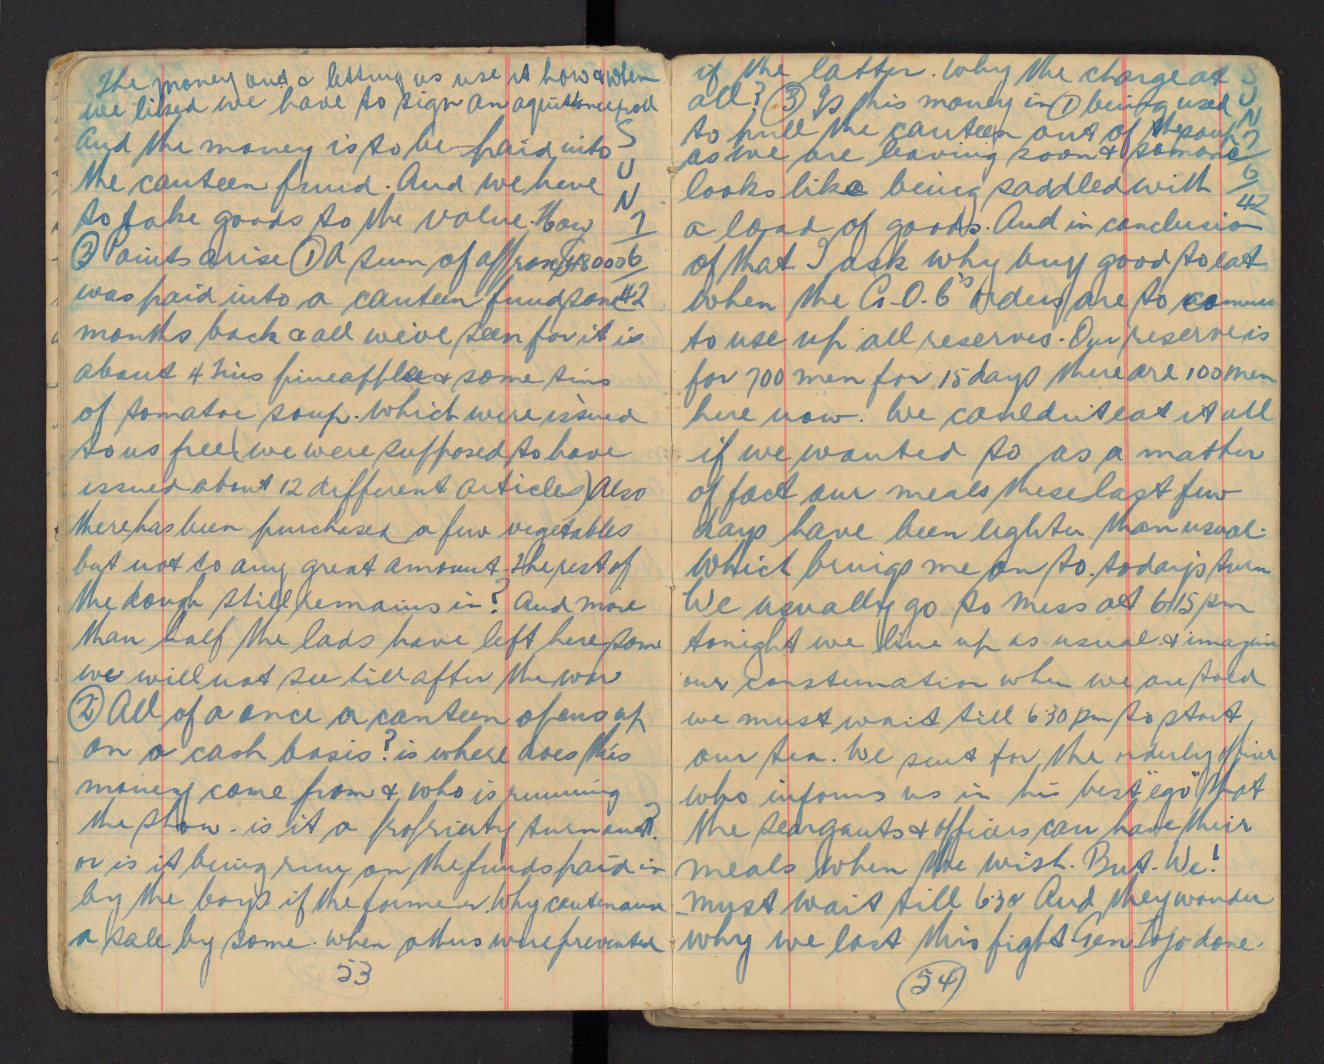 The money and a letting us use it how & when
we liked we have to sign an aquittance roll
And the money is to be paid into
the canteen fund. And we have
to take goods to the value. Now
SUN 7/6/42
③ Points arise ① A sum of approx 48000
was paid into a canteen fund some
months back & all we've seen for it is
about 4 tins pineapple & some tins
of tomatoe soup. Which were issued
to us free (we were supposed to have
issued about 12 different articles) Also
there has been purchased a few vegetables
but not to any great amount. The rest of
the dough still remains in? And more
than half the lads have left here some
we will not see till after the war
② All of a once a canteen opens up
on a cash basis? is where does this
money come from & who is running
the show. is it a propriety turnout?
or is it being run on the funds paid in
by the boys if the former. Why
a sale by some. When others were prevented
53
if the latter. Why the charge at
all? ③ Is this money in ① being used
to pull the canteen out of the soup
as we are leaving soon & someone
looks like being saddled with
SUN 7/6/42
a load of goods. And in conclusion
of that I ask why buy good to eat
when the G.O.C's orders are to
to use up all reserves. Our reserve is
for 700 men for 15 days there are 100 men
here now. We couldn't eat it all
if we wanted to as a matter
of fact our meals these last few
days have been lighter than usual.
Which brings me on to. today's turn
We usually go to mess at 6.15 pm
tonight we line up as usual & imagine
our consternation when we are told
we must wait till 6.30 pm to start
our tea. We sent for the orderly officer
who informs us in his best "ego" that
the seargants & officers can have their
meals when the wish. But. We!
must wait till 6.30 And they wonder
why we lost this fight Gen Tojo done.
54